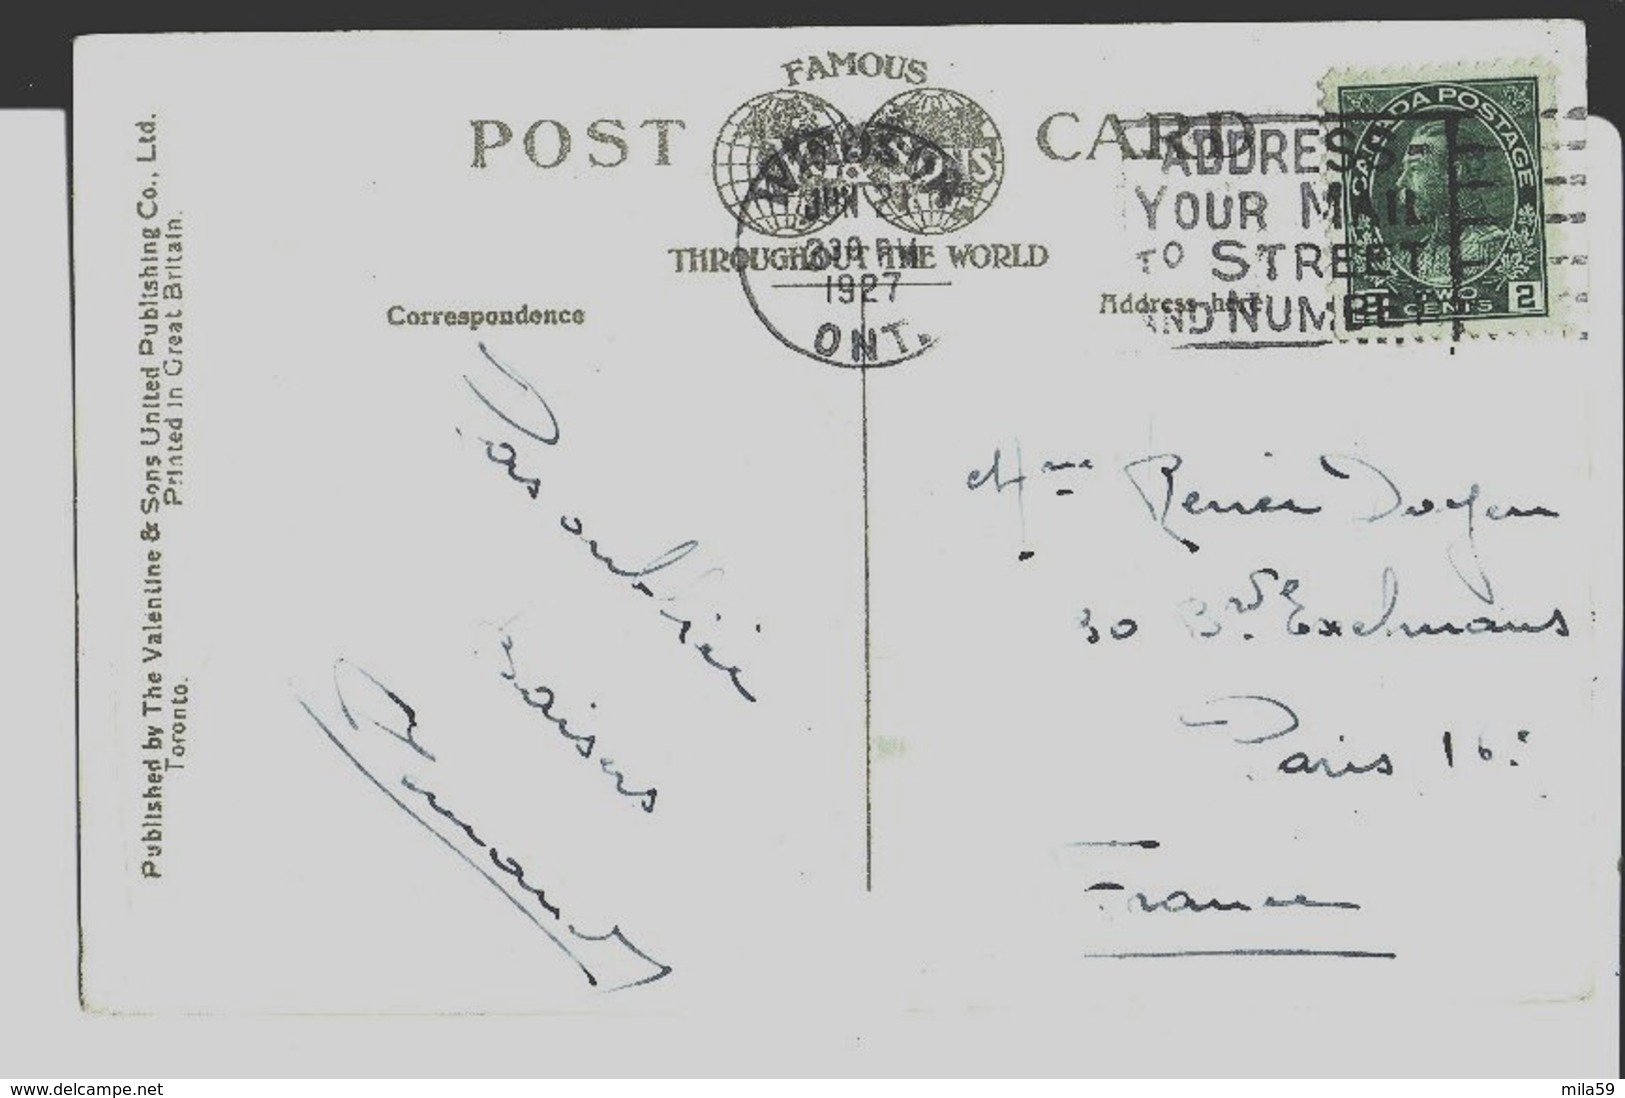 FAMOUS
POST CARD
THROUGHOUT THE WORLD
WINDSOR
JUN 21
2 30 PM
1927
ONT.
ADDRESS
YOUR MAIL
TO STREET
AND NUMBER
CANADA POSTAGE
TWO
CENTS
2
Correspondence
Address here
Published by The Valentine & Sons United Publishing Co., Ltd.
Toronto. Printed in Great Britain.
Pas oublié
Baisers
Mme Renier Doyen
30 Bvd Exelmans
Paris 16e
France
www.delcampe.net
mila59